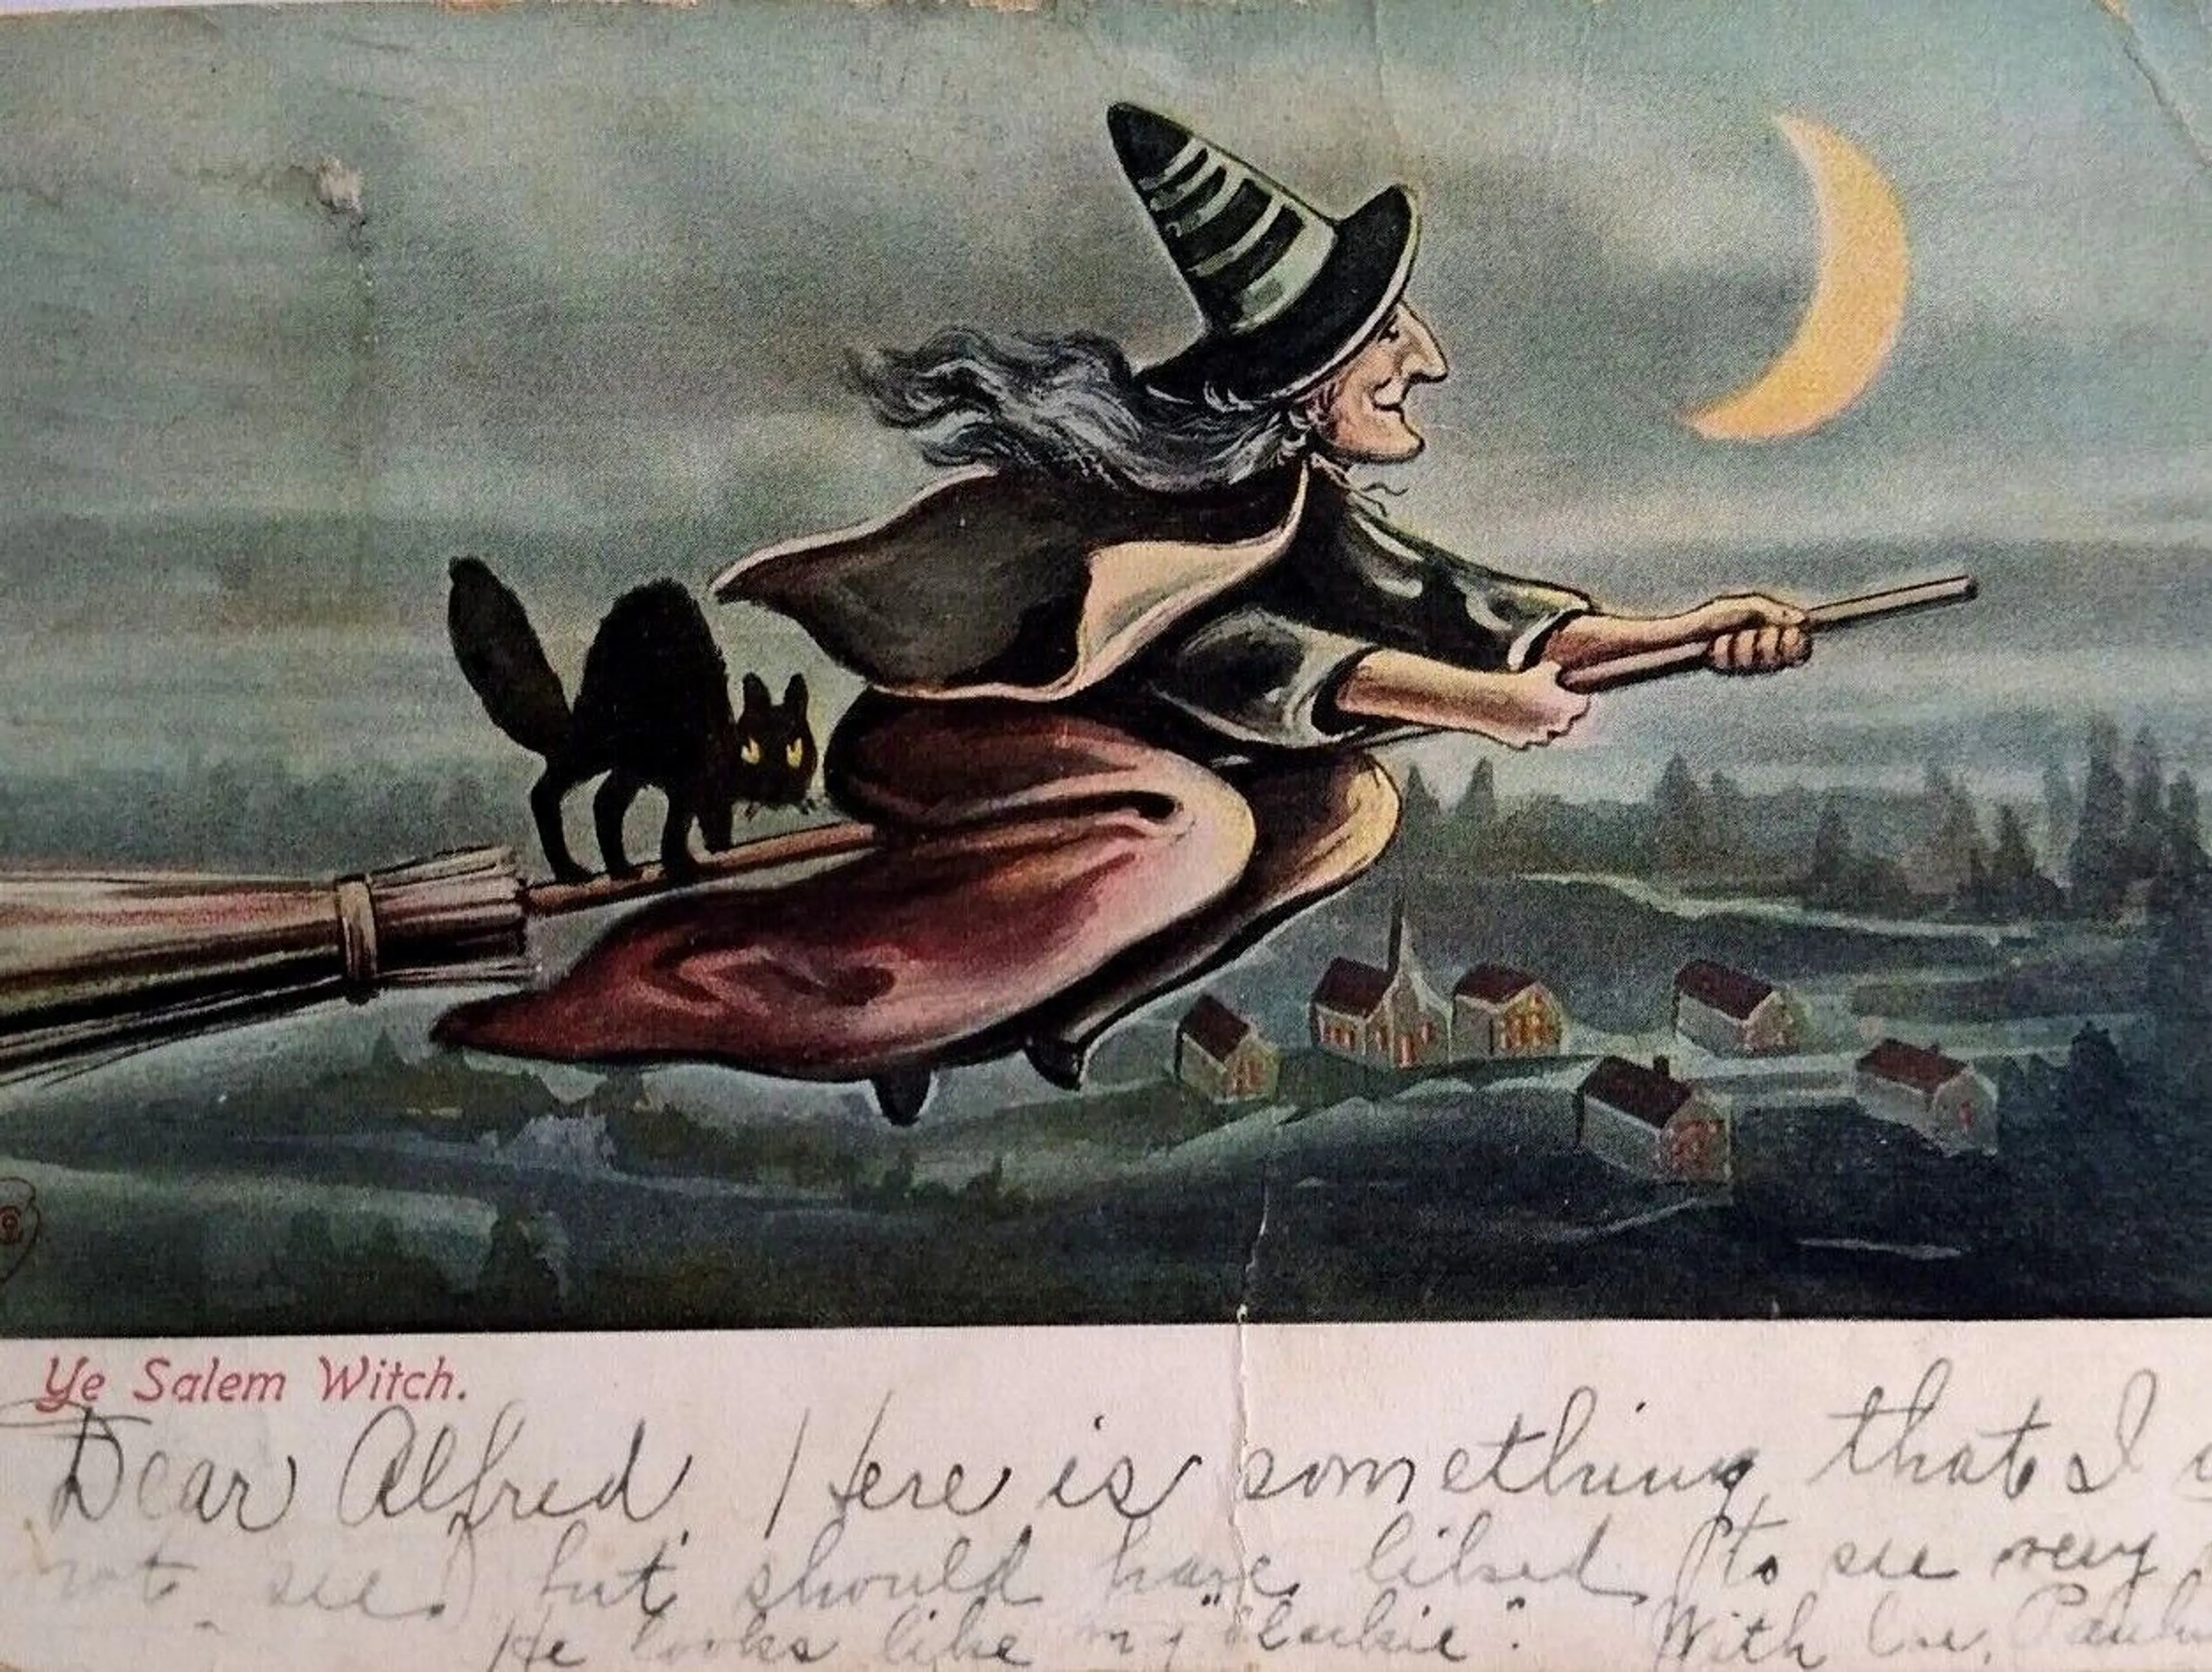 Ye Salem Witch.
Dear Alfred Here is something that I
not see, but should have liked to see very
He looks like my With Love,